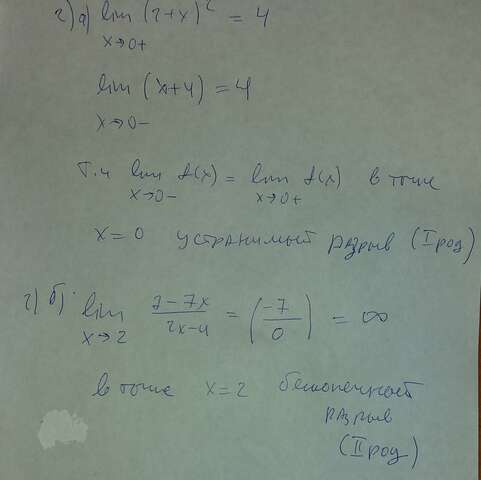 2) а) lim (2+x)² = 4
x→0+
lim (x+4) = 4
x→0−
т.к lim f(x) = lim f(x) в точке
x→0− x→0+
x = 0 устранимый разрыв (I род)
2) б) lim (7−7x)/(2x−4) = (−7/0) = ∞
x→2
в точке x=2 бесконечный
разрыв
(II род)